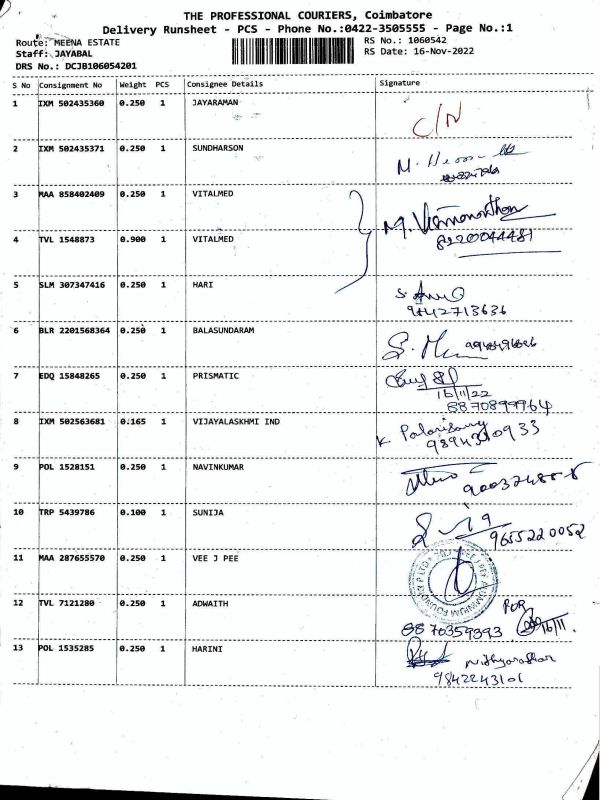 THE PROFESSIONAL COURIERS, Coimbatore
Delivery Runsheet - PCS - Phone No.:0422-3505555 - Page No.:1
Route: MEENA ESTATE
RS No.: 1060542
Staff: JAYABAL
RS Date: 16-Nov-2022
DRS No.: DCJB106054201
S No Consignment No Weight PCS Consignee Details Signature
1 IXM 502435360 0.250 1 JAYARAMAN C/N
2 IXM 502435371 0.250 1 SUNDHARSON
3 MAA 858402409 0.250 1 VITALMED
4 TVL 1548873 0.900 1 VITALMED 8220044481
5 SLM 307347416 0.250 1 HARI
9842713636
6 BLR 2201568364 0.250 1 BALASUNDARAM
7 EDQ 15848265 0.250 1 PRISMATIC
16/11/22
8870899964
8 IXM 502563681 0.165 1 VIJAYALASKHMI IND
9 POL 1528151 0.250 1 NAVINKUMAR
10 TRP 5439786 0.100 1 SUNIJA
9655220052
11 MAA 287655570 0.250 1 VEE J PEE
12 TVL 7121280 0.250 1 ADWAITH
8870359393 16/11.
13 POL 1535285 0.250 1 HARINI
9842243101